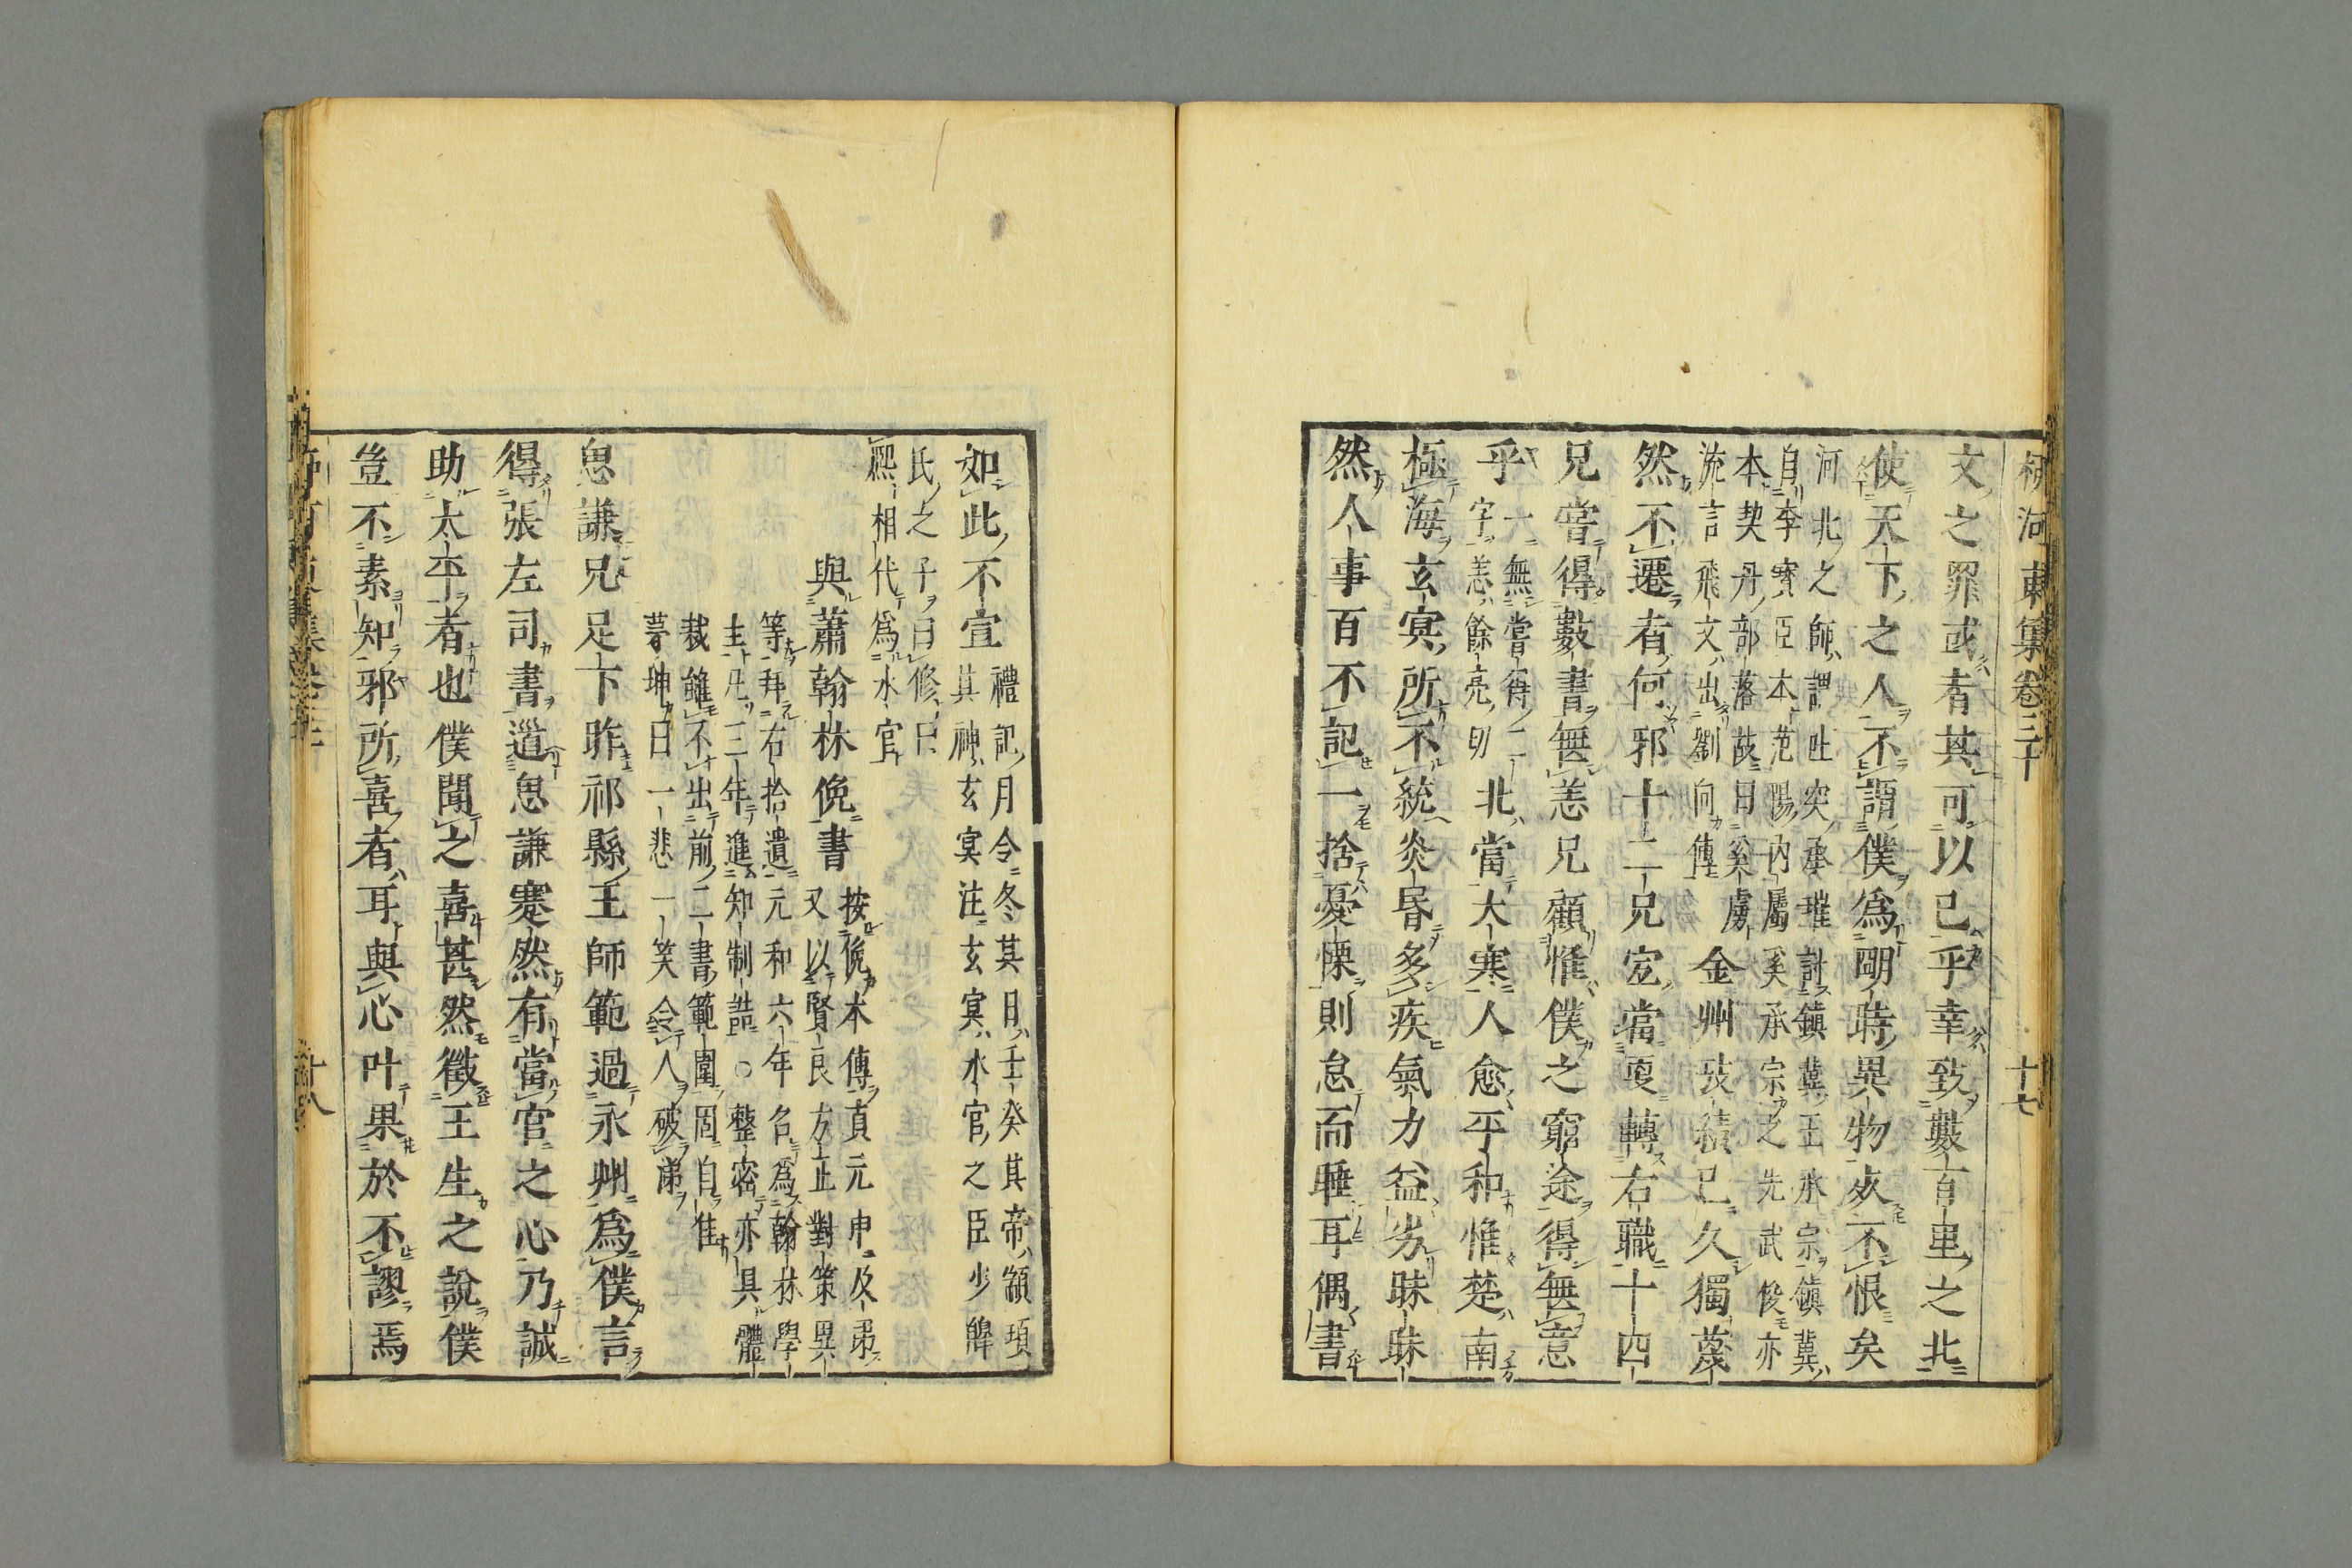 柳河東集卷三十
十七
文之罪或者其可以已乎幸致數百里之北
使天下之人不謂僕爲明時異物死不恨矣
河北之師謂吐突承璀討鎮冀王承宗鎮冀
自李寶臣本范陽內屬奚承宗之先武俊亦
本契丹部落故曰奚虜
流言飛文出劉向傳
金州攷績已久獨蔑
然不遷者何邪十二兄宜當更轉右職十四
兄嘗得數書無恙兄顧惟僕之窮途得無意
乎
一無嘗得二
字恙餘亮切
北當大寒人愈平和惟楚南
極海玄冥所不統炎昏多疾氣力益劣昧昧
然人事百不記一捨憂慄則怠而睡耳偶書
如此不宣
禮記月令冬其日壬癸其帝顓頊
其神玄冥注玄冥水官之臣少皞
氏之子曰修曰
熙相代爲水官
與蕭翰林俛書
按俛本傳貞元中及第
又以賢良方正對策異
等拜右拾遺元和六年召爲翰林學
士凡三年進知制誥○整密亦具體
裁雖不出前二書範圍固自佳
茅坤曰一悲一笑令人破涕
思謙兄足下昨祁縣王師範過永州爲僕言
得張左司書道思謙蹇然有當官之心乃誠
助太平者也僕聞之喜甚然徵王生之說僕
豈不素知邪所喜者耳與心叶果於不謬焉
十八